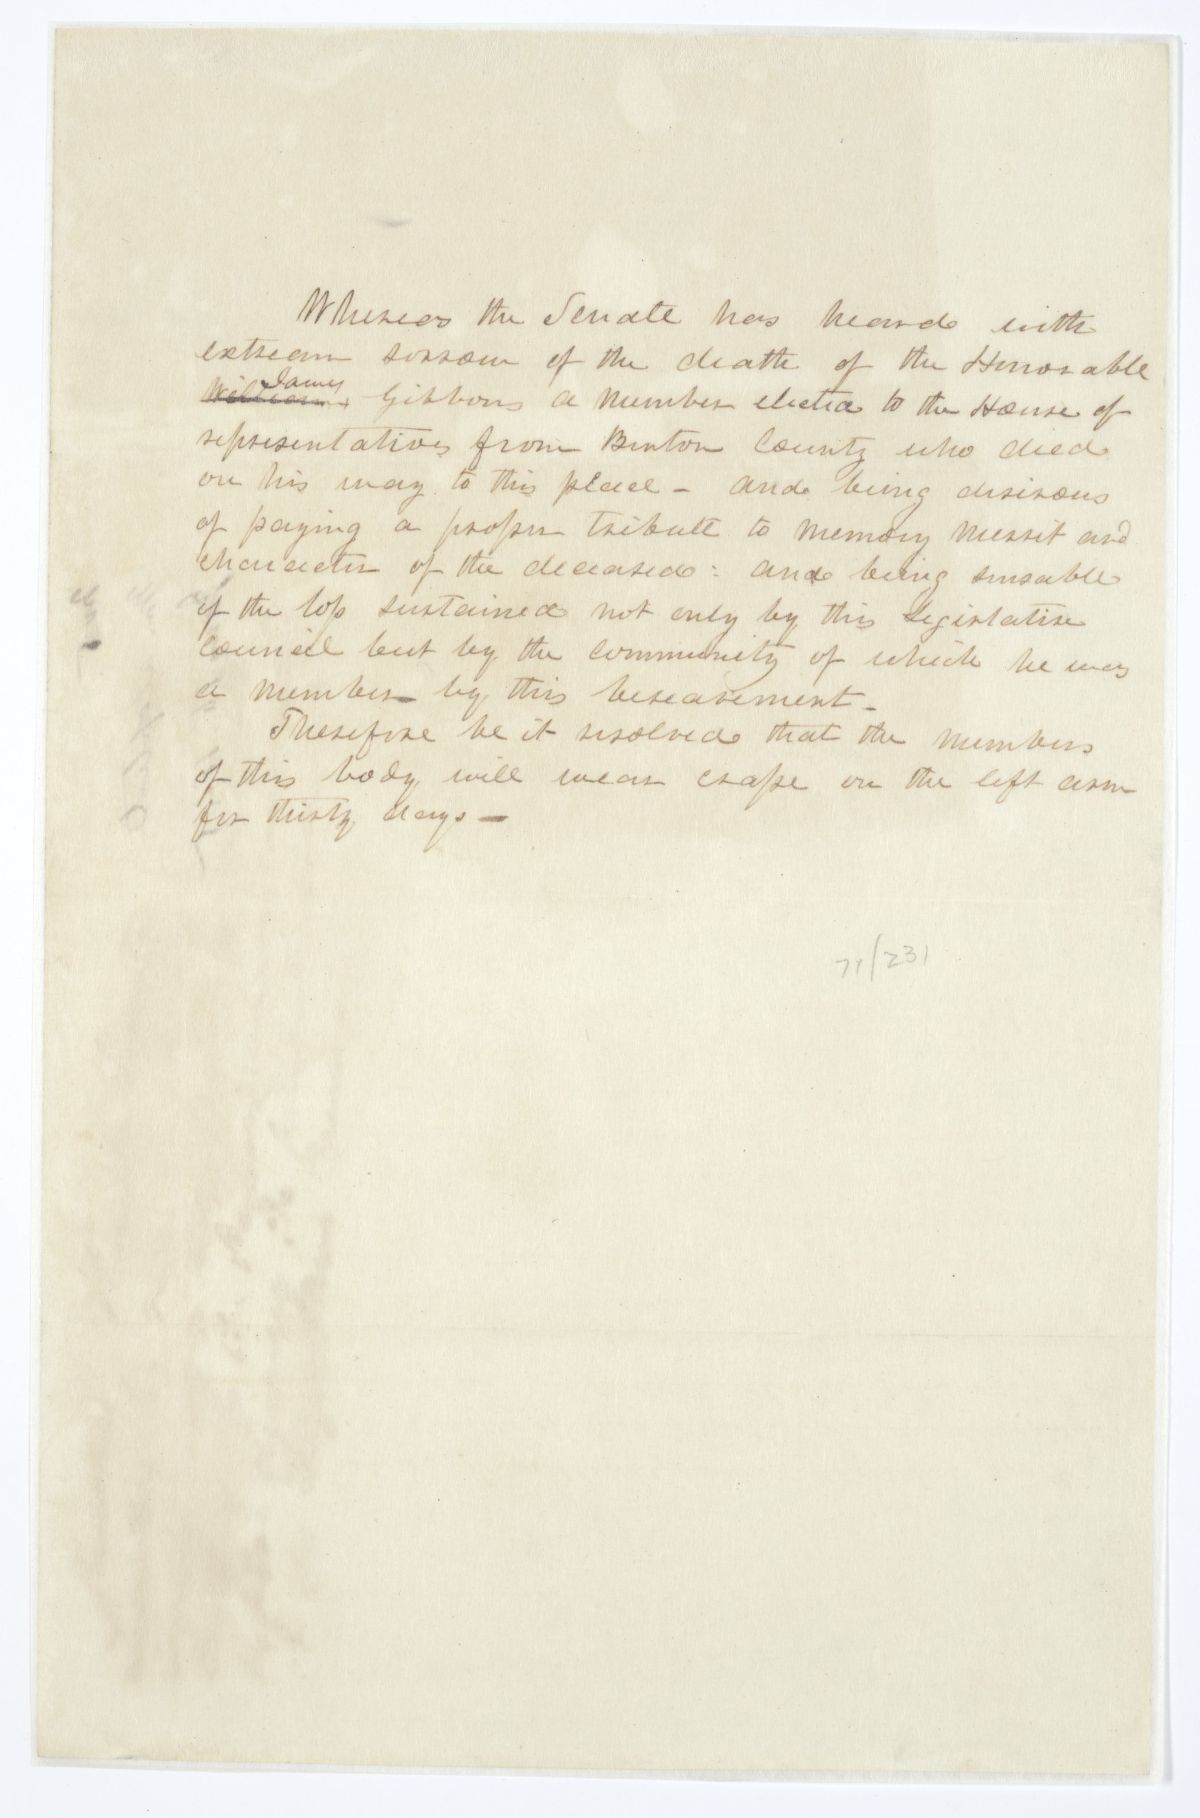 Whereas the Senate has heard with
extream sorrow of the death of the Honorable
William James Gibbons a Member elected to the House of
representatives from Benton County who died
on his way to this place - and being desirous
of paying a proper tribute to Memory Merrit and
character of the deceased: and being sensable
of the loss sustained not only by this Legislative
Council but by the community of which he was
a member by this bereavement -
Therefore be it resolved that the members
of this body will wear crape on the left arm
for thirty days -
71/231